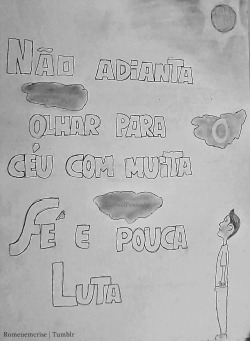 NÃO ADIANTA
OLHAR PARA O
CÉU COM MUITA
FÉ E POUCA
LUTA
Romenemcrise | Tumblr